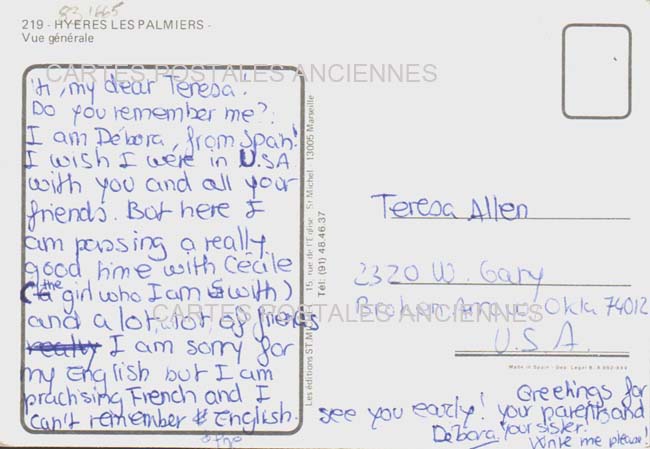 831665
219 - HYERES LES PALMIERS -
Vue générale
CARTES POSTALES ANCIENNES
Hi, my dear Teresa!
Do you remember me?
I am Débora, from Spain!
I wish I were in U.S.A
with you and all your
friends. But here I
am passing a really
good time with Cécile
(the girl who I am with)
and a lot, lot of friends
really I am sorry for
my English but I am
practising French and I
can't remember English.
Les éditions ST.M
15, rue de l'Eglise St Michel 13005 Marseille
Tél: (91) 48.46.37
Teresa Allen
2320 W. Gary
Broken Arrow Okla 74012
U.S.A.
CARTES POSTALES ANCIENNES
Made in Spain - Dep. Legal B.
Greetings for
see you early! your parents and
Débora your sister!
Write me please!